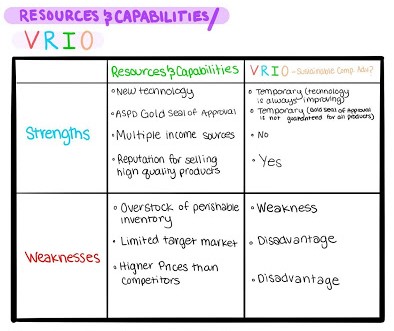 RESOURCES & CAPABILITIES/
VRIO
Resources & Capabilities
VRIO - Sustainable Comp. Adv?
Strengths
• New technology
• ASPD Gold Seal of Approval
• Multiple income sources
• Reputation for selling
high quality products
• Temporary (technology
is always improving)
• Temporary (Gold Seal of Approval
is not guaranteed for all products)
• No
• Yes
Weaknesses
• Overstock of perishable
inventory
• Limited target market
• Higher Prices than
competitors
• Weakness
• Disadvantage
• Disadvantage